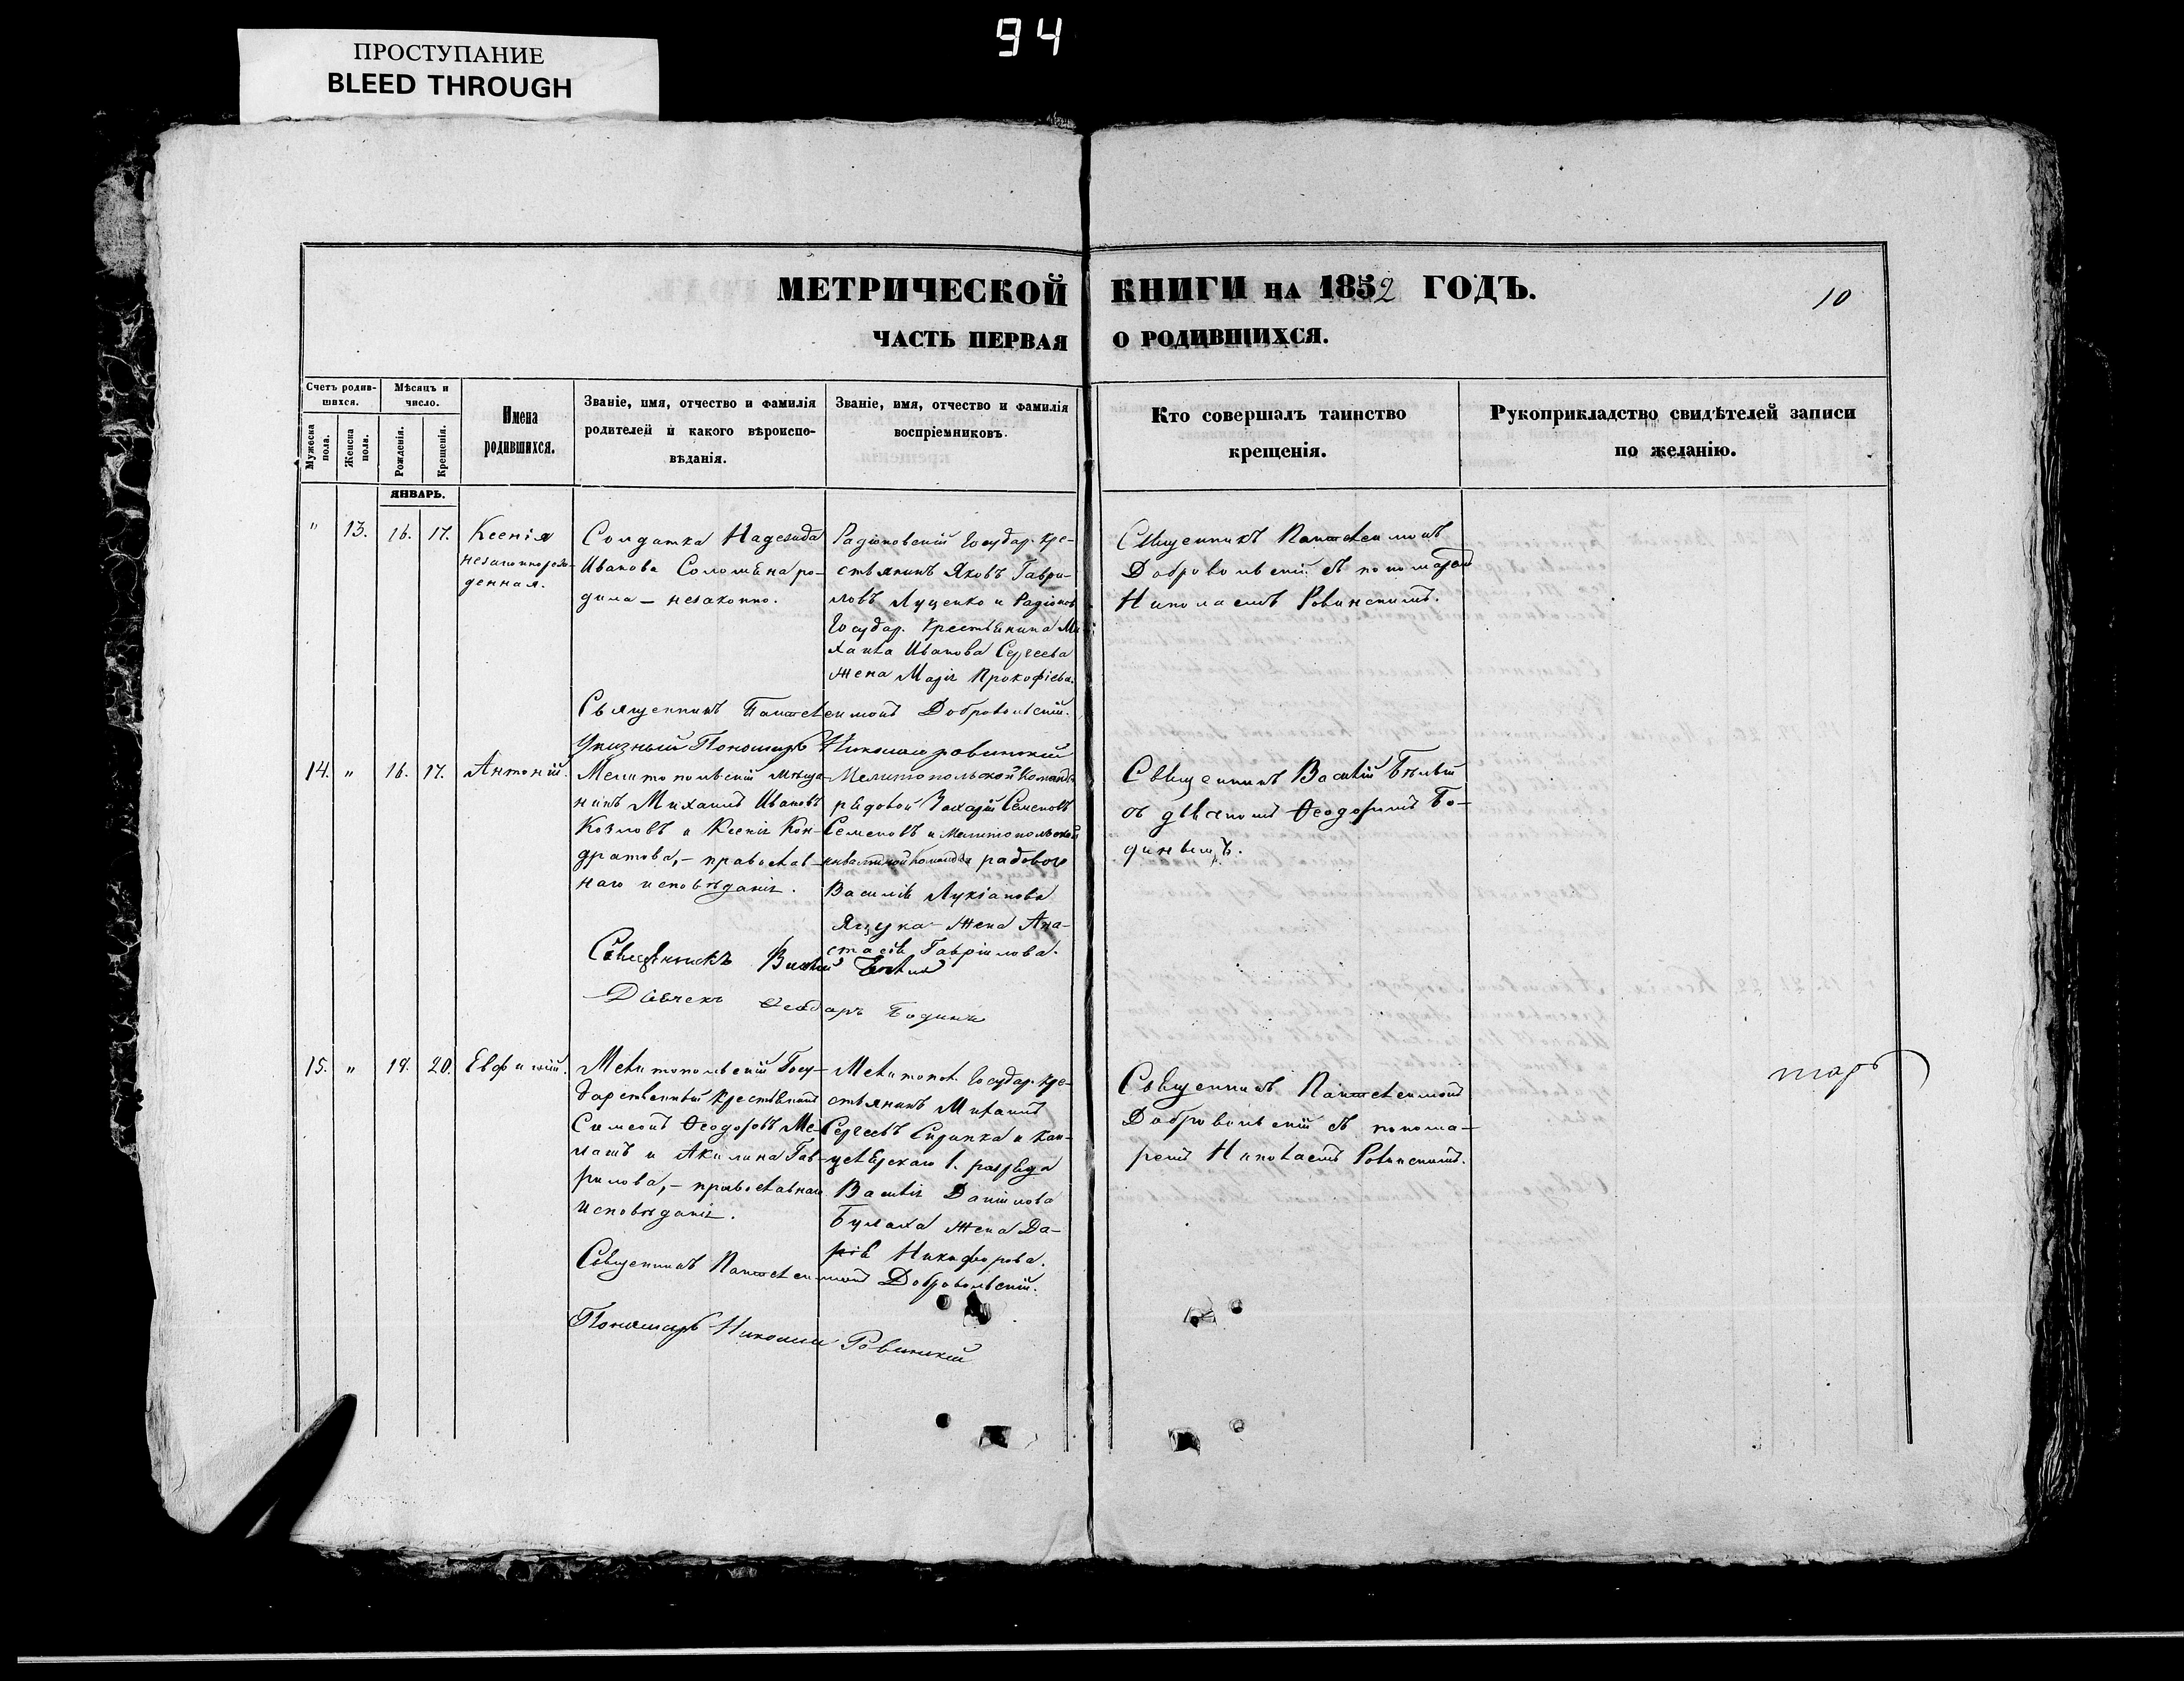 94
ПРОСТУПАНИЕ
BLEED THROUGH
МЕТРИЧЕСКОЙ КНИГИ НА 1852 ГОДЪ.
10
ЧАСТЬ ПЕРВАЯ О РОДИВШИХСЯ.
Счетъ родив-
шихся.
Мужеска
пола.
Женска
пола.
Мѣсяцъ и
число.
Рожденія.
Крещенія.
Имена
родившихся.
Званіе, имя, отчество и фамилія
родителей и какого вѣроиспо-
вѣданія.
Званіе, имя, отчество и фамилія
воспріемниковъ.
Кто совершалъ таинство
крещенія.
Рукоприкладство свидѣтелей записи
по желанію.
ЯНВАРЬ.
" 13. 16. 17.
Ксенія
незаконнорож-
денная.
Солдатка Надежда
Иванова Соломяна ро-
дила – незаконно.
Радіоновскій Государ. кре-
стьянинъ Яковъ Гаври-
ловъ Луценко и Радіонов
Государ. Крестьянина Ми-
хаила Иванова Сергеева
жена Марія Прокофіева.
Священникъ Пантелеимонъ
Добровольскій съ пономаремъ
Николаемъ Ровинскимъ.
Священникъ Пантелеимонъ Добровольскій.
Указный Пономарь Николай Ровинскій
14. " 16. 17.
Антоній.
Мелитопольскій мѣща-
нинъ Михаилъ Ивановъ
Козловъ и Ксенія Кон-
дратова, – православ-
наго исповѣданія.
Мелитопольской Команды
рядовой Захарій Семеновъ
Семеновъ и Мелитопольской
инвалидной Команды рядового
Василія Лукіанова
Яцука жена Ана-
стасія Гавріилова.
Священникъ Василій Бѣлый
съ дьячкомъ Ѳеодоромъ Бо-
динымъ.
Священникъ Василій Бѣлый
Дьячекъ Ѳеодоръ Бодинъ
15. " 19. 20.
Евфимій.
Мелитопольскій Госу-
дарственный Крестьянинъ
Симеонъ Ѳеодоровъ Ме-
лашъ и Акилина Гав-
рилова, – православнаго
исповѣданія.
Мелитопол. Государ. кре-
стьянинъ Михаилъ
Сергеевъ Сирипка и Кан-
целярскаго 1. разряда
Василія Данилова
Булаха жена Да-
рія Никифорова.
Священникъ Пантелеимонъ
Добровольскій съ понома-
ремъ Николаемъ Ровинскимъ.
Священникъ Пантелеимонъ Добровольскій.
Пономарь Николай Ровинскій
тарь